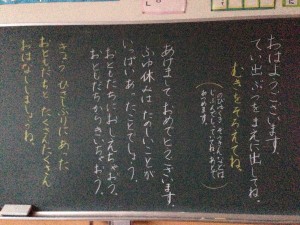 おはようございます。
ていしゅつぶつをまえに出してね。
むきをそろえてね。
あけましておめでとうございます。
ふゆ休みはたのしいことが
いっぱいあったことでしょう。
おともだちにおしえちゃおう。
おともだちからきいちゃおう。
きょうひさしぶりにあった
おともだちとたくさんたくさん
おはなししましょうね。